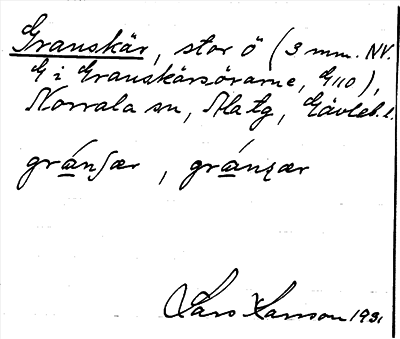 Granskär, stor ö (3 mm. NV.
G i Granskärsörarne, G110),
Norrala sn, Ala tg, Gävleb. l.
gránʃær, gránʂær
Lars Larsson 1931